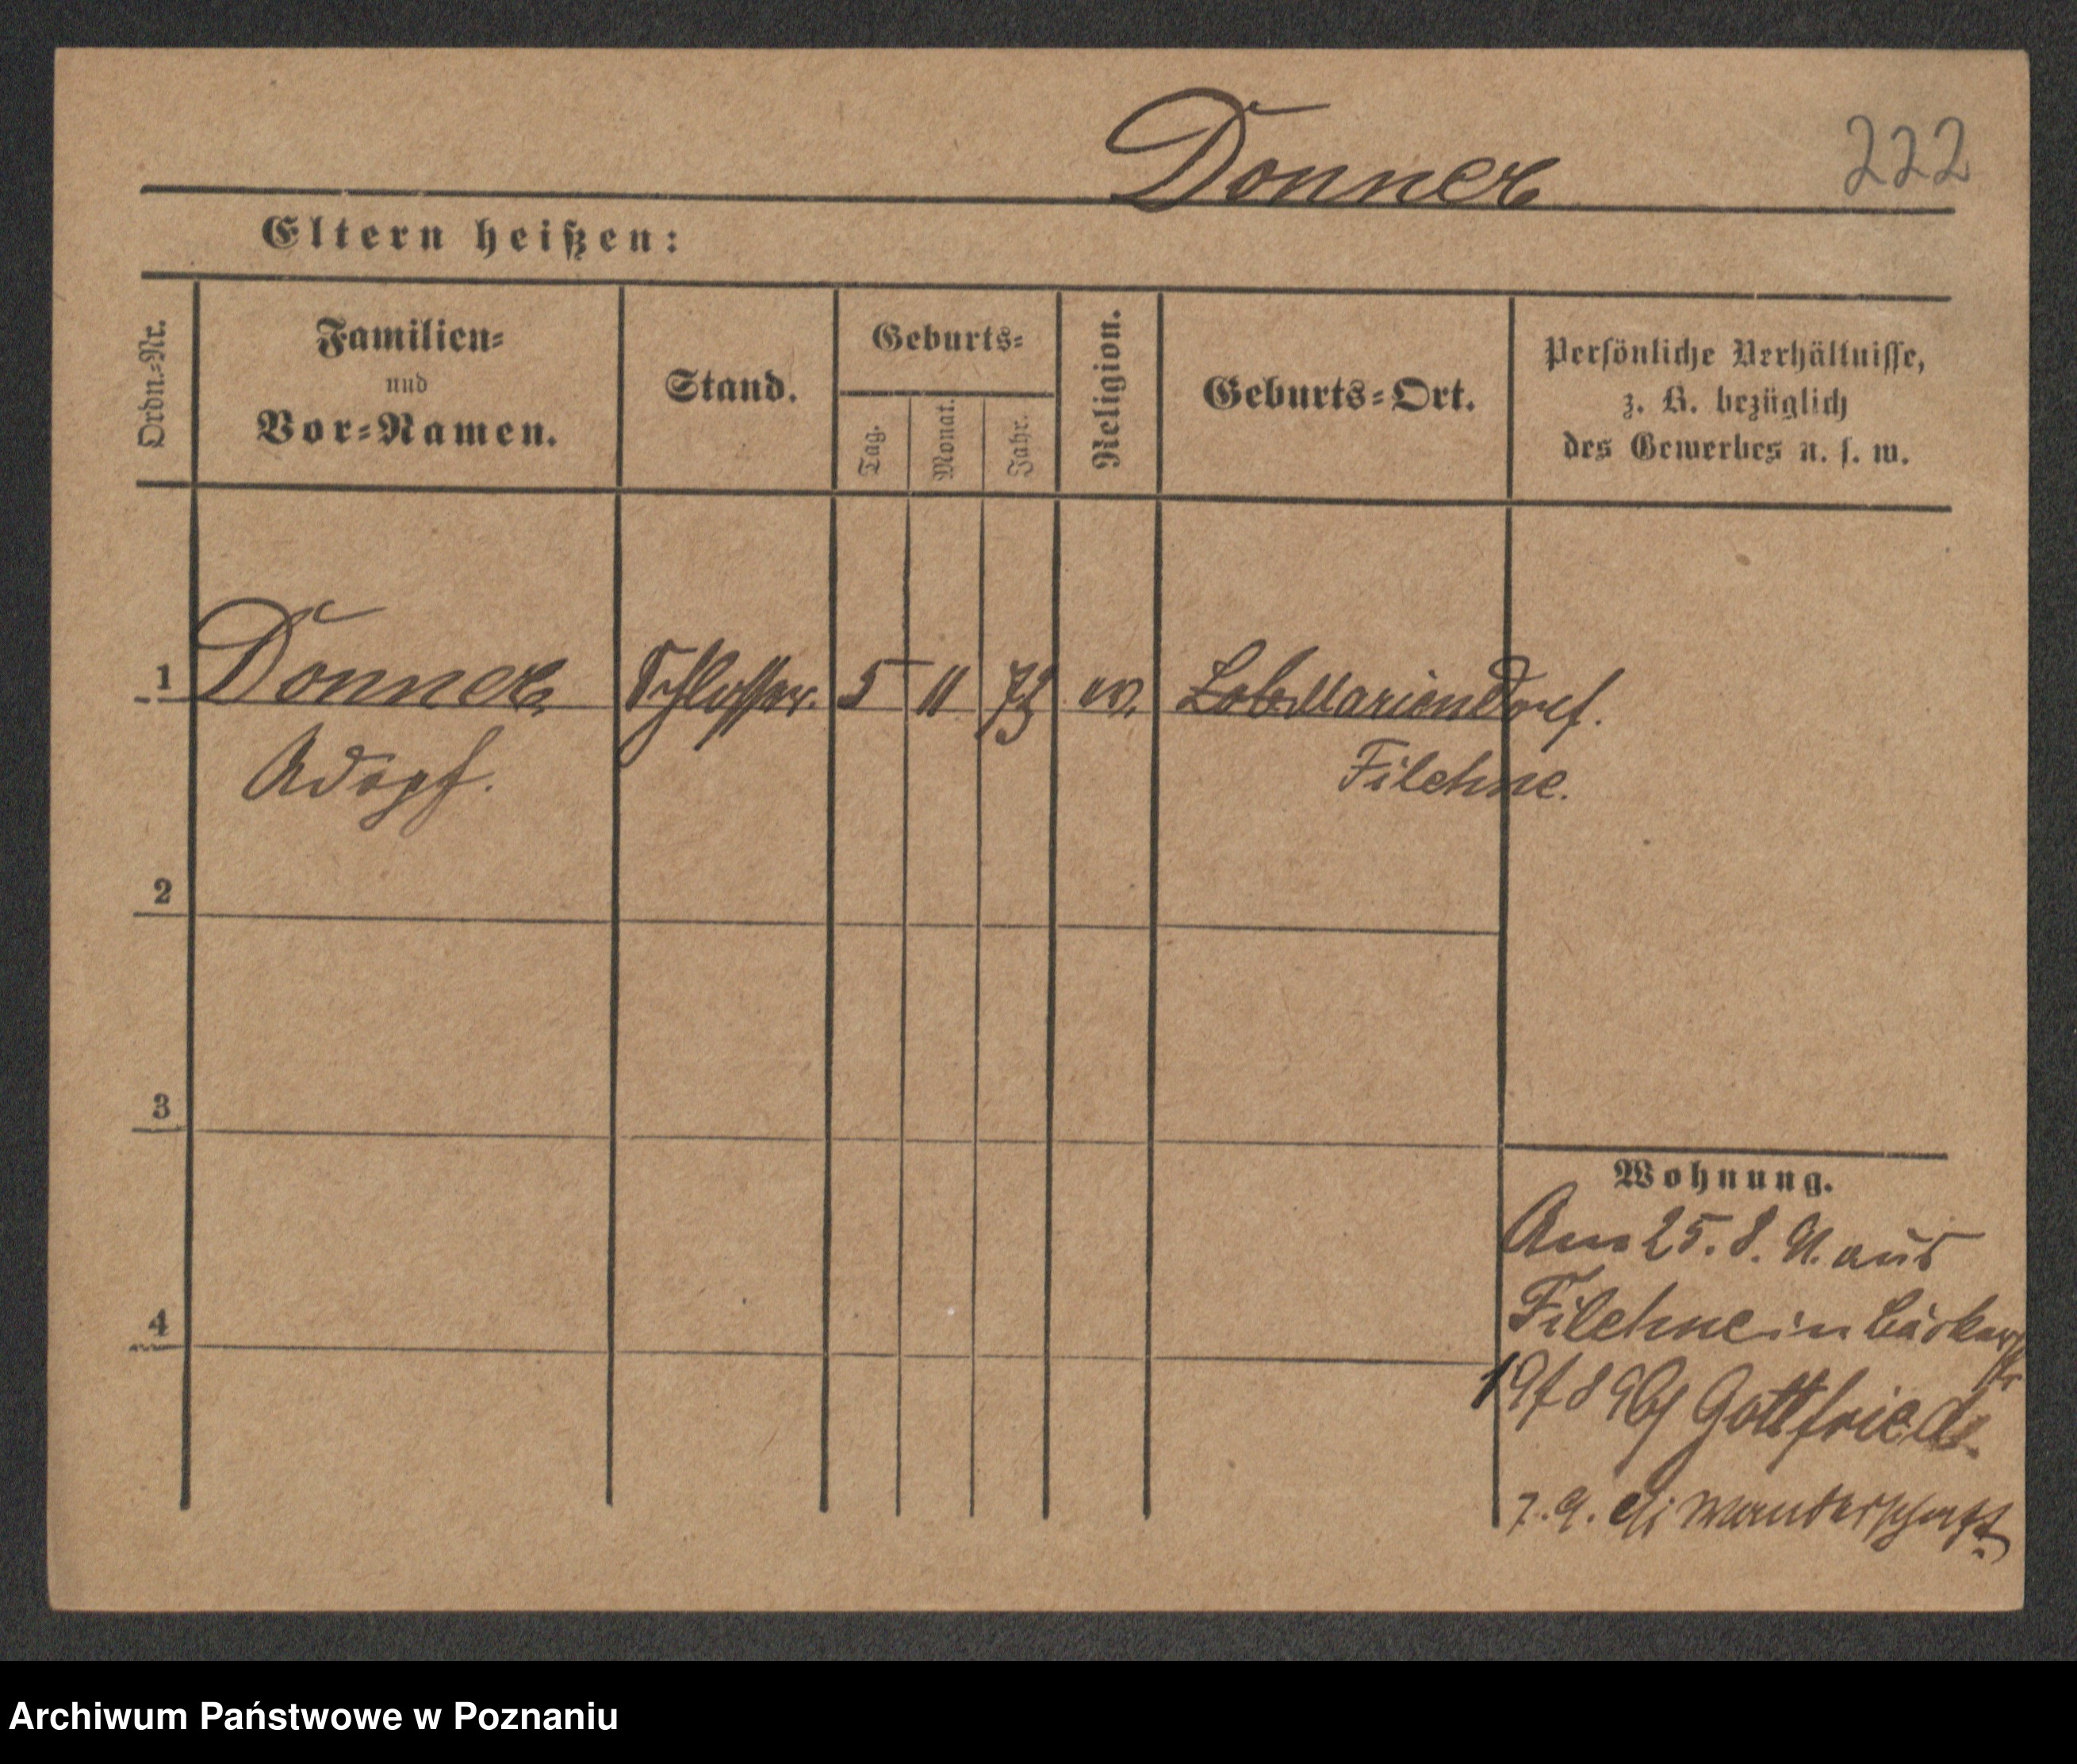 Donner
222
Eltern heißen:
Ordn.=Nr.
Familien=
und
Vor=Namen.
Stand.
Geburts=
Tag.
Monat.
Jahr.
Religion.
Geburts=Ort.
Persönliche Verhältnisse,
z. B. bezüglich
des Gewerbes u. s. w.
1 Donner Schlosser. 5 11 73 ev. Mariendorf.
Filehne.
2
3
4
Wohnung.
Am 25. 8. 91. aus
Filehne in Bäckerstr
19 bf Gottfried.
7. 9. Wanderschaft.
Archiwum Państwowe w Poznaniu